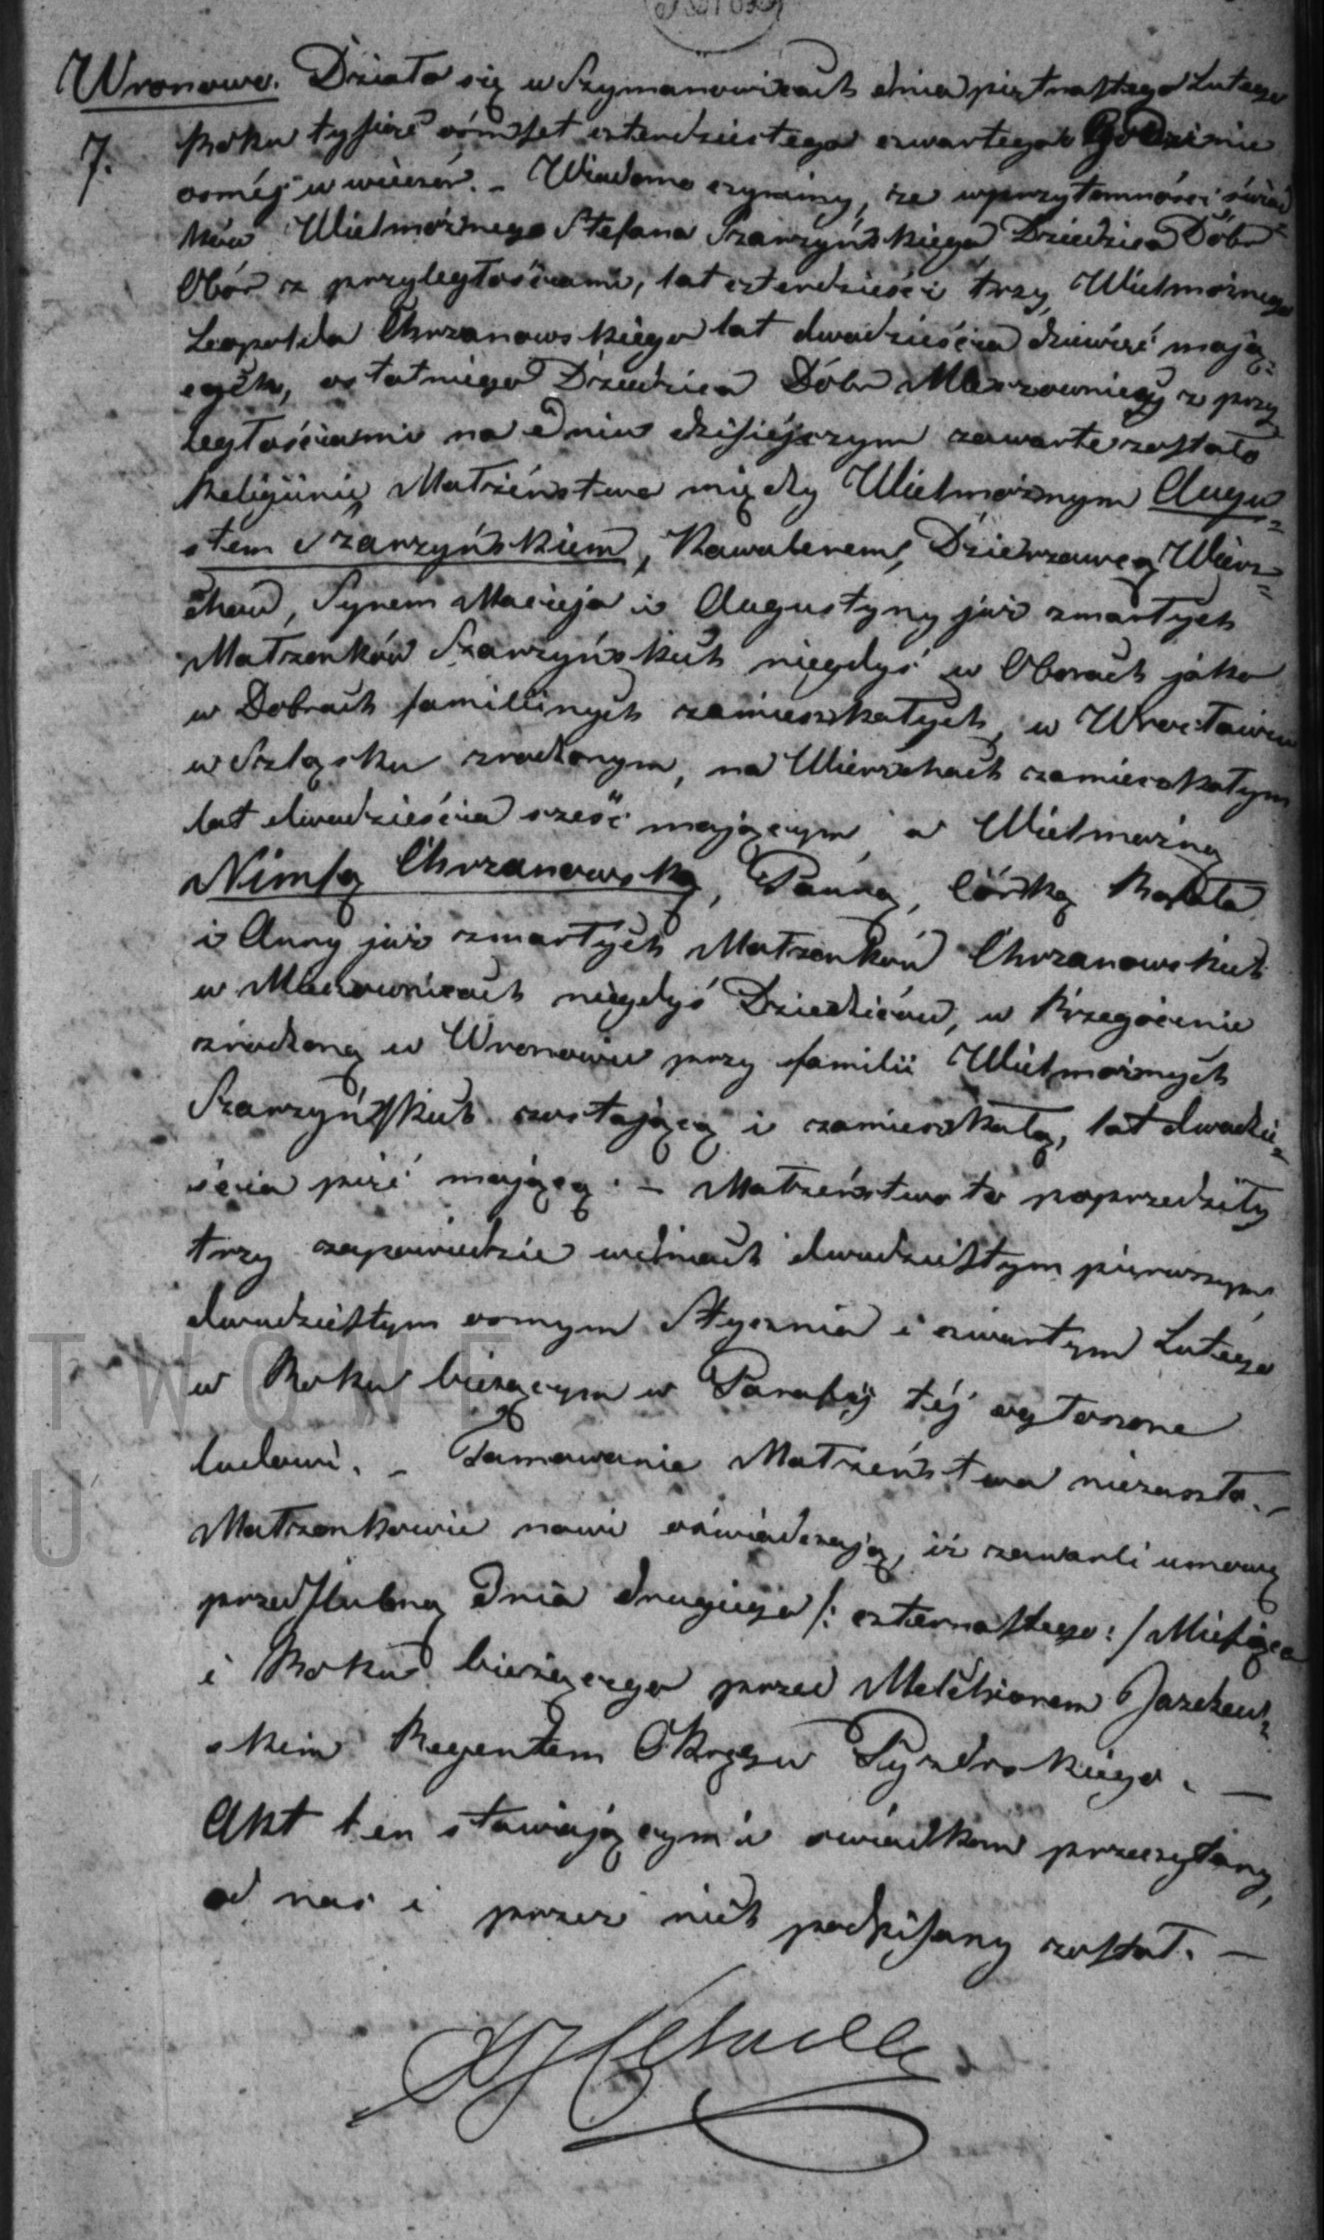 Wronowo. Działo się w Szymanowicach dnia piętnastego Lutego
7. Roku tysiąc ośmset czterdziestego czwartego o Godzinie
osméj w wieczór. – Wiadomo czynimy, że w przytomności świad
ków Wielmożnego Stefana Szarzyńskiego Dziedzica Dóbr
Obór z przyległościami, lat czterdzieści trzy, Wielmożnego
Leopolda Chrzanowskiego lat dwadzieścia dziewięć mają=
cych, ostatniego Dziedzica Dóbr z przy
ległościami na dniu dzisiéjszym zawarte zostało
Religijnie Małżeństwo między Wielmożnym Augu=
stem Szarzyńskiem, Kawalerem, Dzierzawcą Wierz=
chów, Synem Macieja i Augustyny już zmarłych
Małżonków Szarzyńskich niegdyś w Oborach jako
w Dobrach famillinych zamieszkałych, w Wrocławiu
w Szląsku zrodzonym, na Wierzchach zamieszkałym
lat dwadzieścia sześć mającym, a Wielmożną
Nimfą Chrzanowską, Panną, Córką Rafała
i Anny już zmarłych Małżonków Chrzanowskich
w niegdyś Dziedziców, w
zrodzoną w Wronowie przy familii Wielmożnych
Szarzyńskich zostającą i zamieszkałą, lat dwadzie=
ścia pięć mającą. – Małżeństwo to poprzedziły
trzy zapowiedzie w dniach dwudziestym pierwszym
dwudziestym osmym Stycznia i czwartym Lutego
w Roku bieżącym w Parafij téj ogłoszone
ludowi. – Tamowanie Małżeństwa niezaszło. –
Małżonkowie nowi oświadczają, iż zawarli umowę
przedślubną Dnia drugiego /: czternastego :/ Miesiąca
i Roku bieżącego przed Melchiorem
skim Regentem Okręgu Pyzdrskiego. –
Akt ten stawającym i świadkom przeczytany,
od nas i przez nich podpisany został. –
TWOWE
U